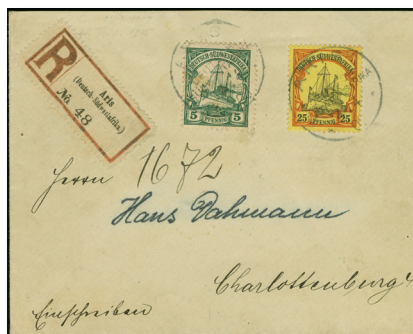 R
Aris
(Deutsch-Südwestafrika)
No 48
DEUTSCH-SÜDWESTAFRIKA
5 PFENNIG 5
DEUTSCH-SÜDWESTAFRIKA
25 PFENNIG 25
1672
Herrn
Hans Dahmann
Charlottenburg 4
Einschreiben